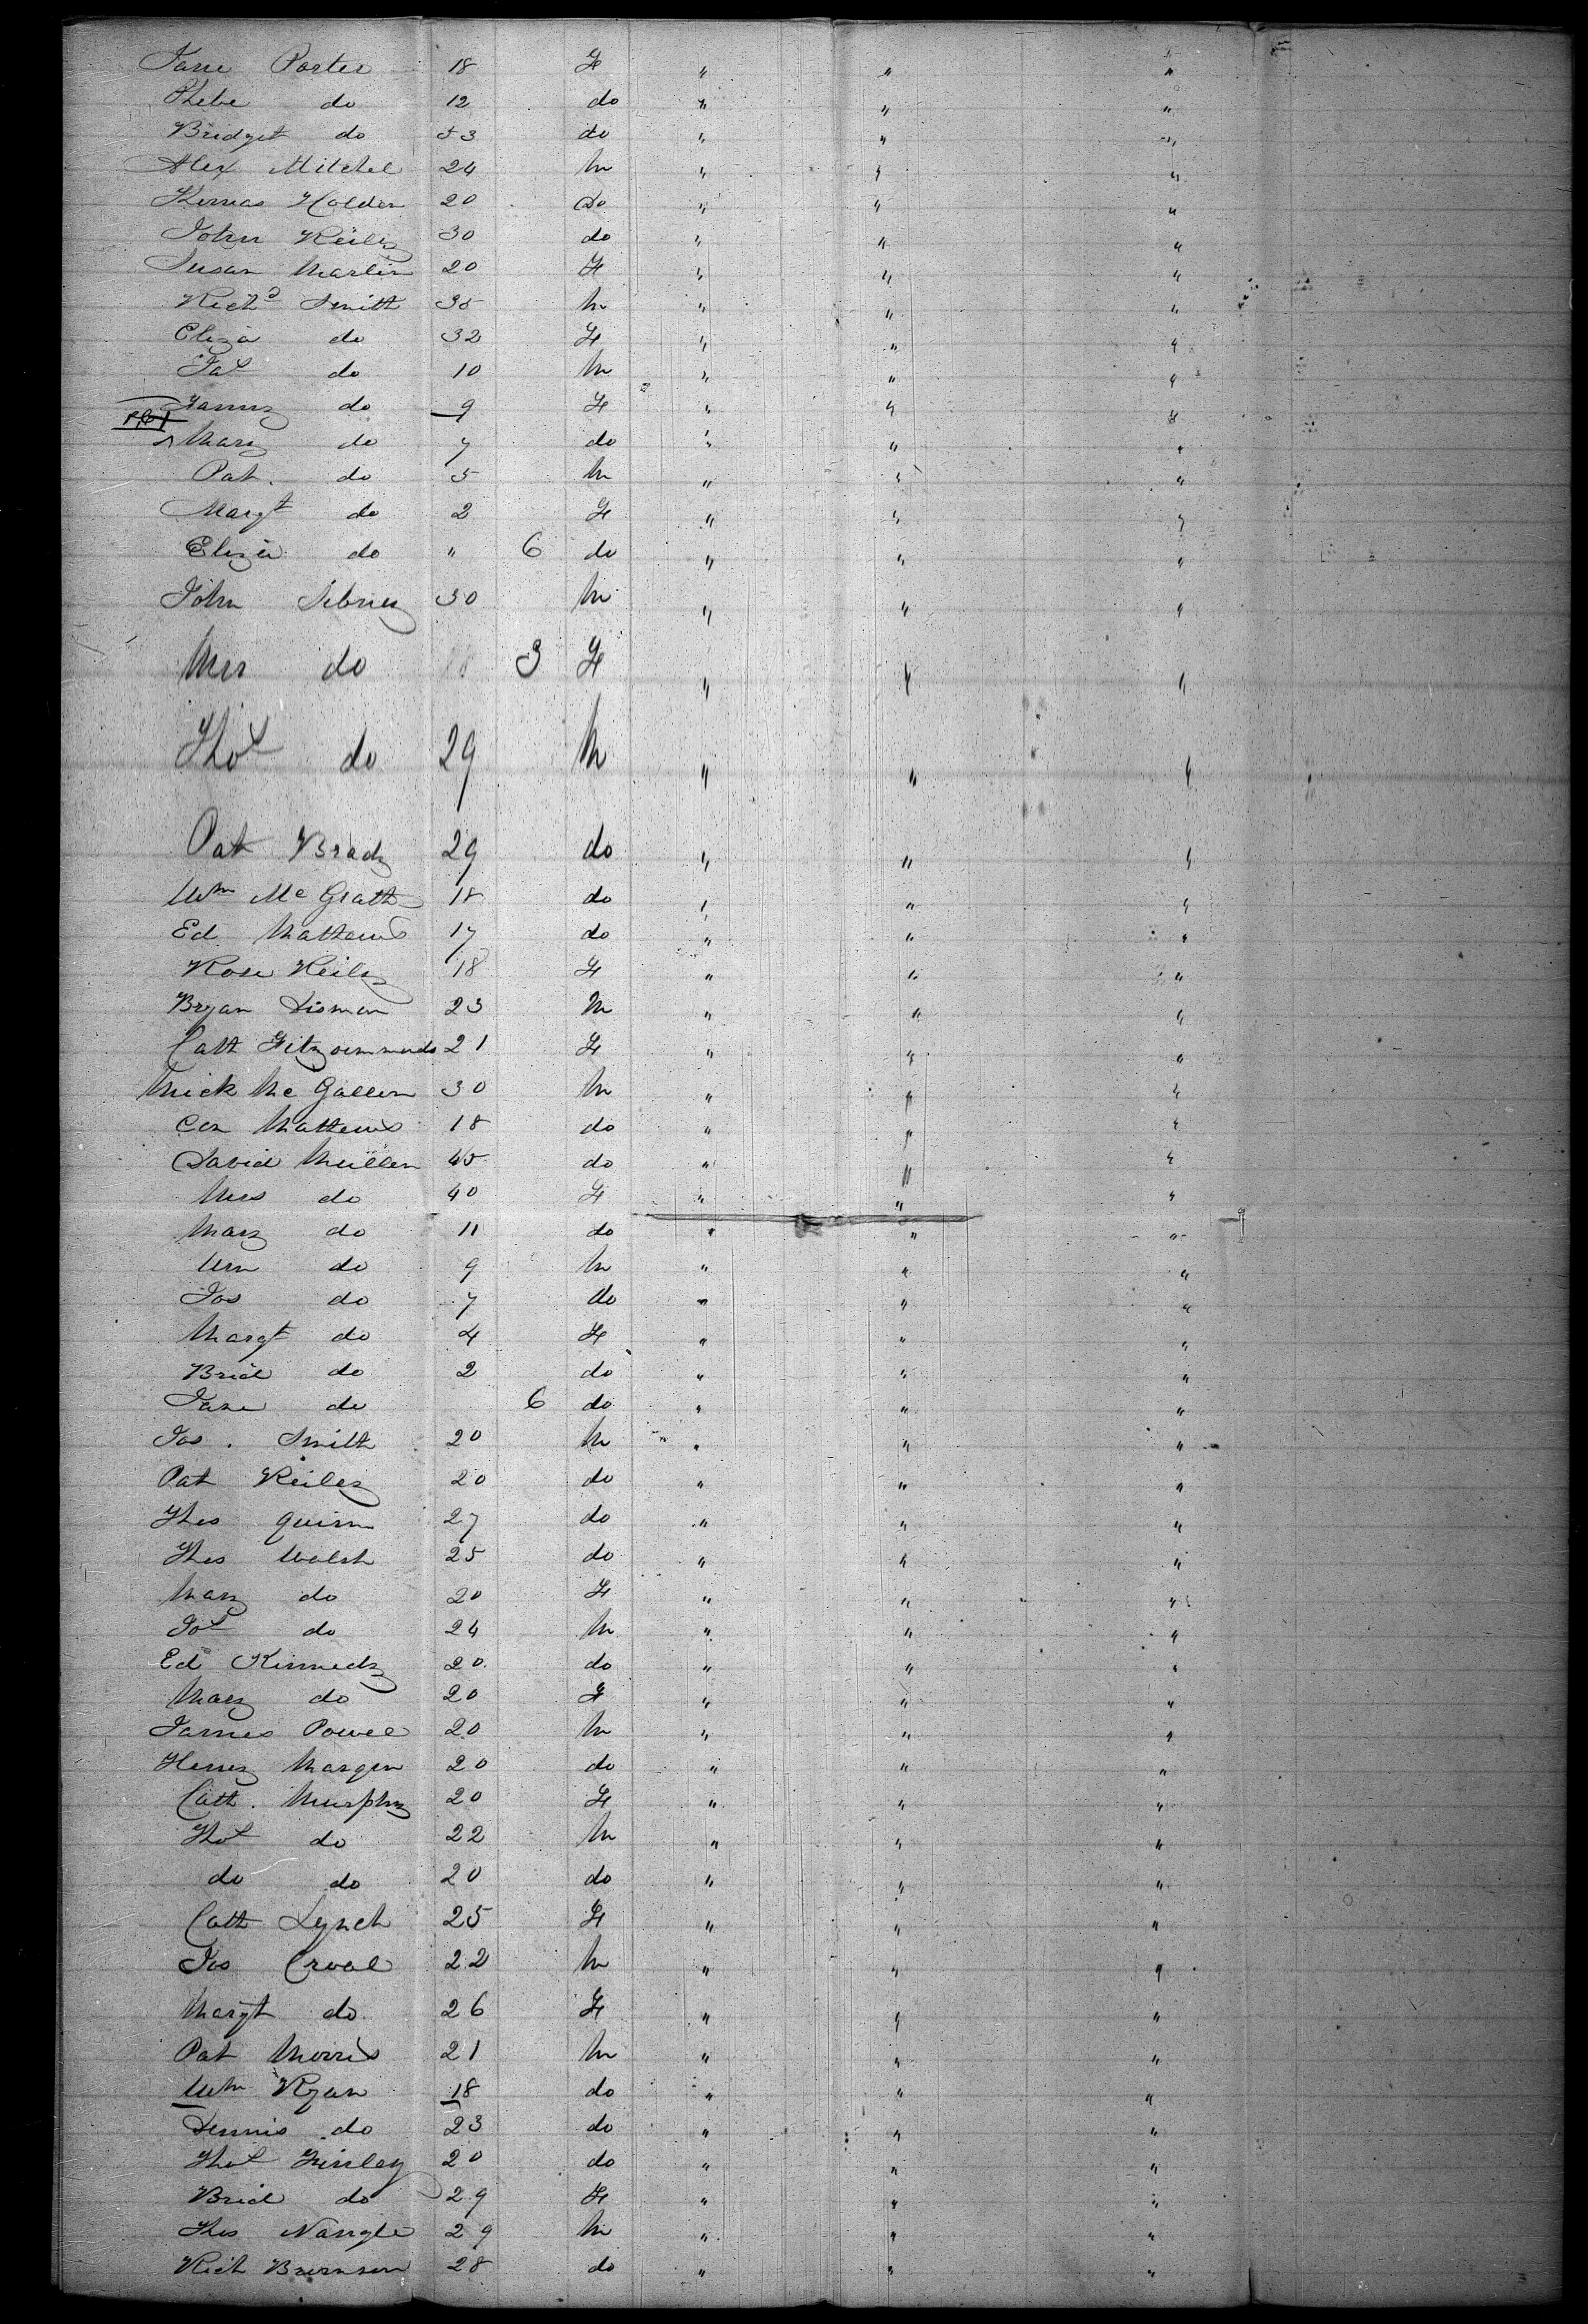 Jane Porter 18 F " " "
Phebe do 12 do " " "
Bridget do 53 do " " "
Alex Mitchel 24 M " " "
Thomas Holden 20 do " " "
John Reily 30 do " " "
Susan Martin 20 F " " "
Richd Smith 35 M " " "
Eliza do 32 F " " "
Jas do 10 M " " "
Fanny do 9 F " " "
Mary do 7 do " " "
Pat. do 5 M " " "
Margt do 2 F " " "
Eliza do " 6 do " " "
John 30 M " " "
Mrs do 3 F " " "
Thos do 29 M " " "
Pat Brady 29 do " " "
Wm McGrath 18 do " " "
Ed Mathews 17 do " " "
Rose Reily 18 F " " "
Bryan Disman 23 M " " "
Cath Fitzsimmonds 21 F " " "
Mick McGallern 30 M " " "
Con Mathews 18 do " " "
David Mullen 45 do " " "
Mrs do 40 F " " "
Mary do 11 do " " "
Wm do 9 M " " "
Jas do 7 do " " "
Margt do 4 F " " "
Brid do 2 do " " "
Jane do 6 do " " "
Jas. Smith 20 M " " "
Pat Reiley 20 do " " "
Thos Quinn 27 do " " "
Thos Walsh 25 do " " "
Mary do 20 F " " "
Jos do 24 M " " "
Ed Kennedy 20 do " " "
Mary do 20 F " " "
James Powel 20 M " " "
Henry Margin 20 do " " "
Cath. Murphy 20 F " " "
Thos do 22 M " " "
do do 20 do " " "
Cath Lynch 25 F " " "
Jos Croal 22 M " " "
Margt do 26 F " " "
Pat Morris 21 M " " "
Wm Ryan 18 do " " "
Dennis do 23 do " " "
Thos Finlay 20 do " " "
Brid do 29 F " " "
Thos Nangle 29 M " " "
Rich 28 do " " "